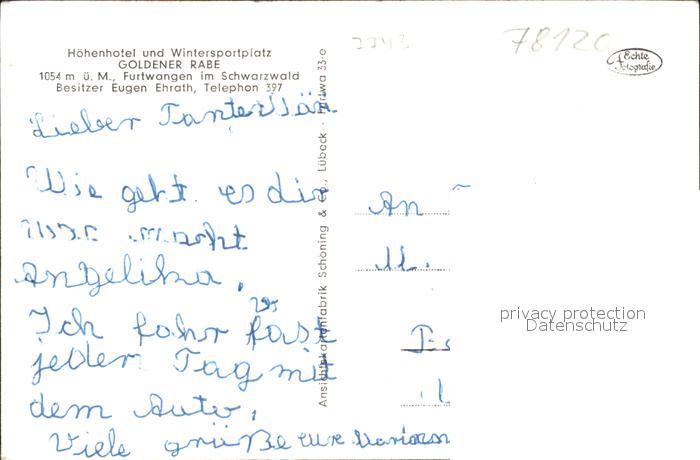 Höhenhotel und Wintersportplatz
GOLDENER RABE
1054 m ü. M., Furtwangen im Schwarzwald
Besitzer Eugen Ehrath, Telephon 397
78120
Echte Fotografie
Lieber
Wie geht es dir
macht
Angelika,
Ich fahr fast
jeden Tag mit
dem Auto,
Viele grüße eure
Ansichtskartenfabrik Schöning & Co., Lübeck
An
privacy protection
Datenschutz